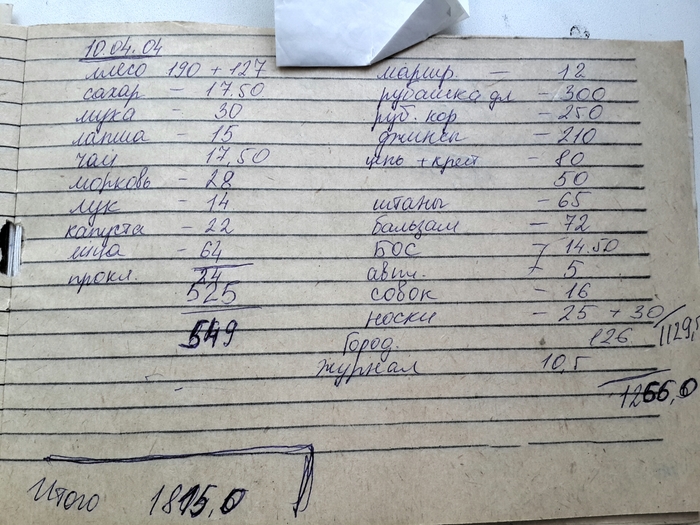 10.04.04
мясо 190 + 127
сахар - 17.50
мука - 30
лапша - 15
чай 17,50
морковь - 28
лук - 14
капуста - 22
яйца - 64
прокл. 24
525
549
маршр. - 12
рубашка дл - 300
руб. кор - 250
джинсы - 210
цепь + крест - 80
50
штаны - 65
бальзам - 72
БОС - 14.50
- 5
совок - 16
носки - 25 + 30
1129,5
Город. 126
Журнал 10,5
1266,0
Итого 1815,0